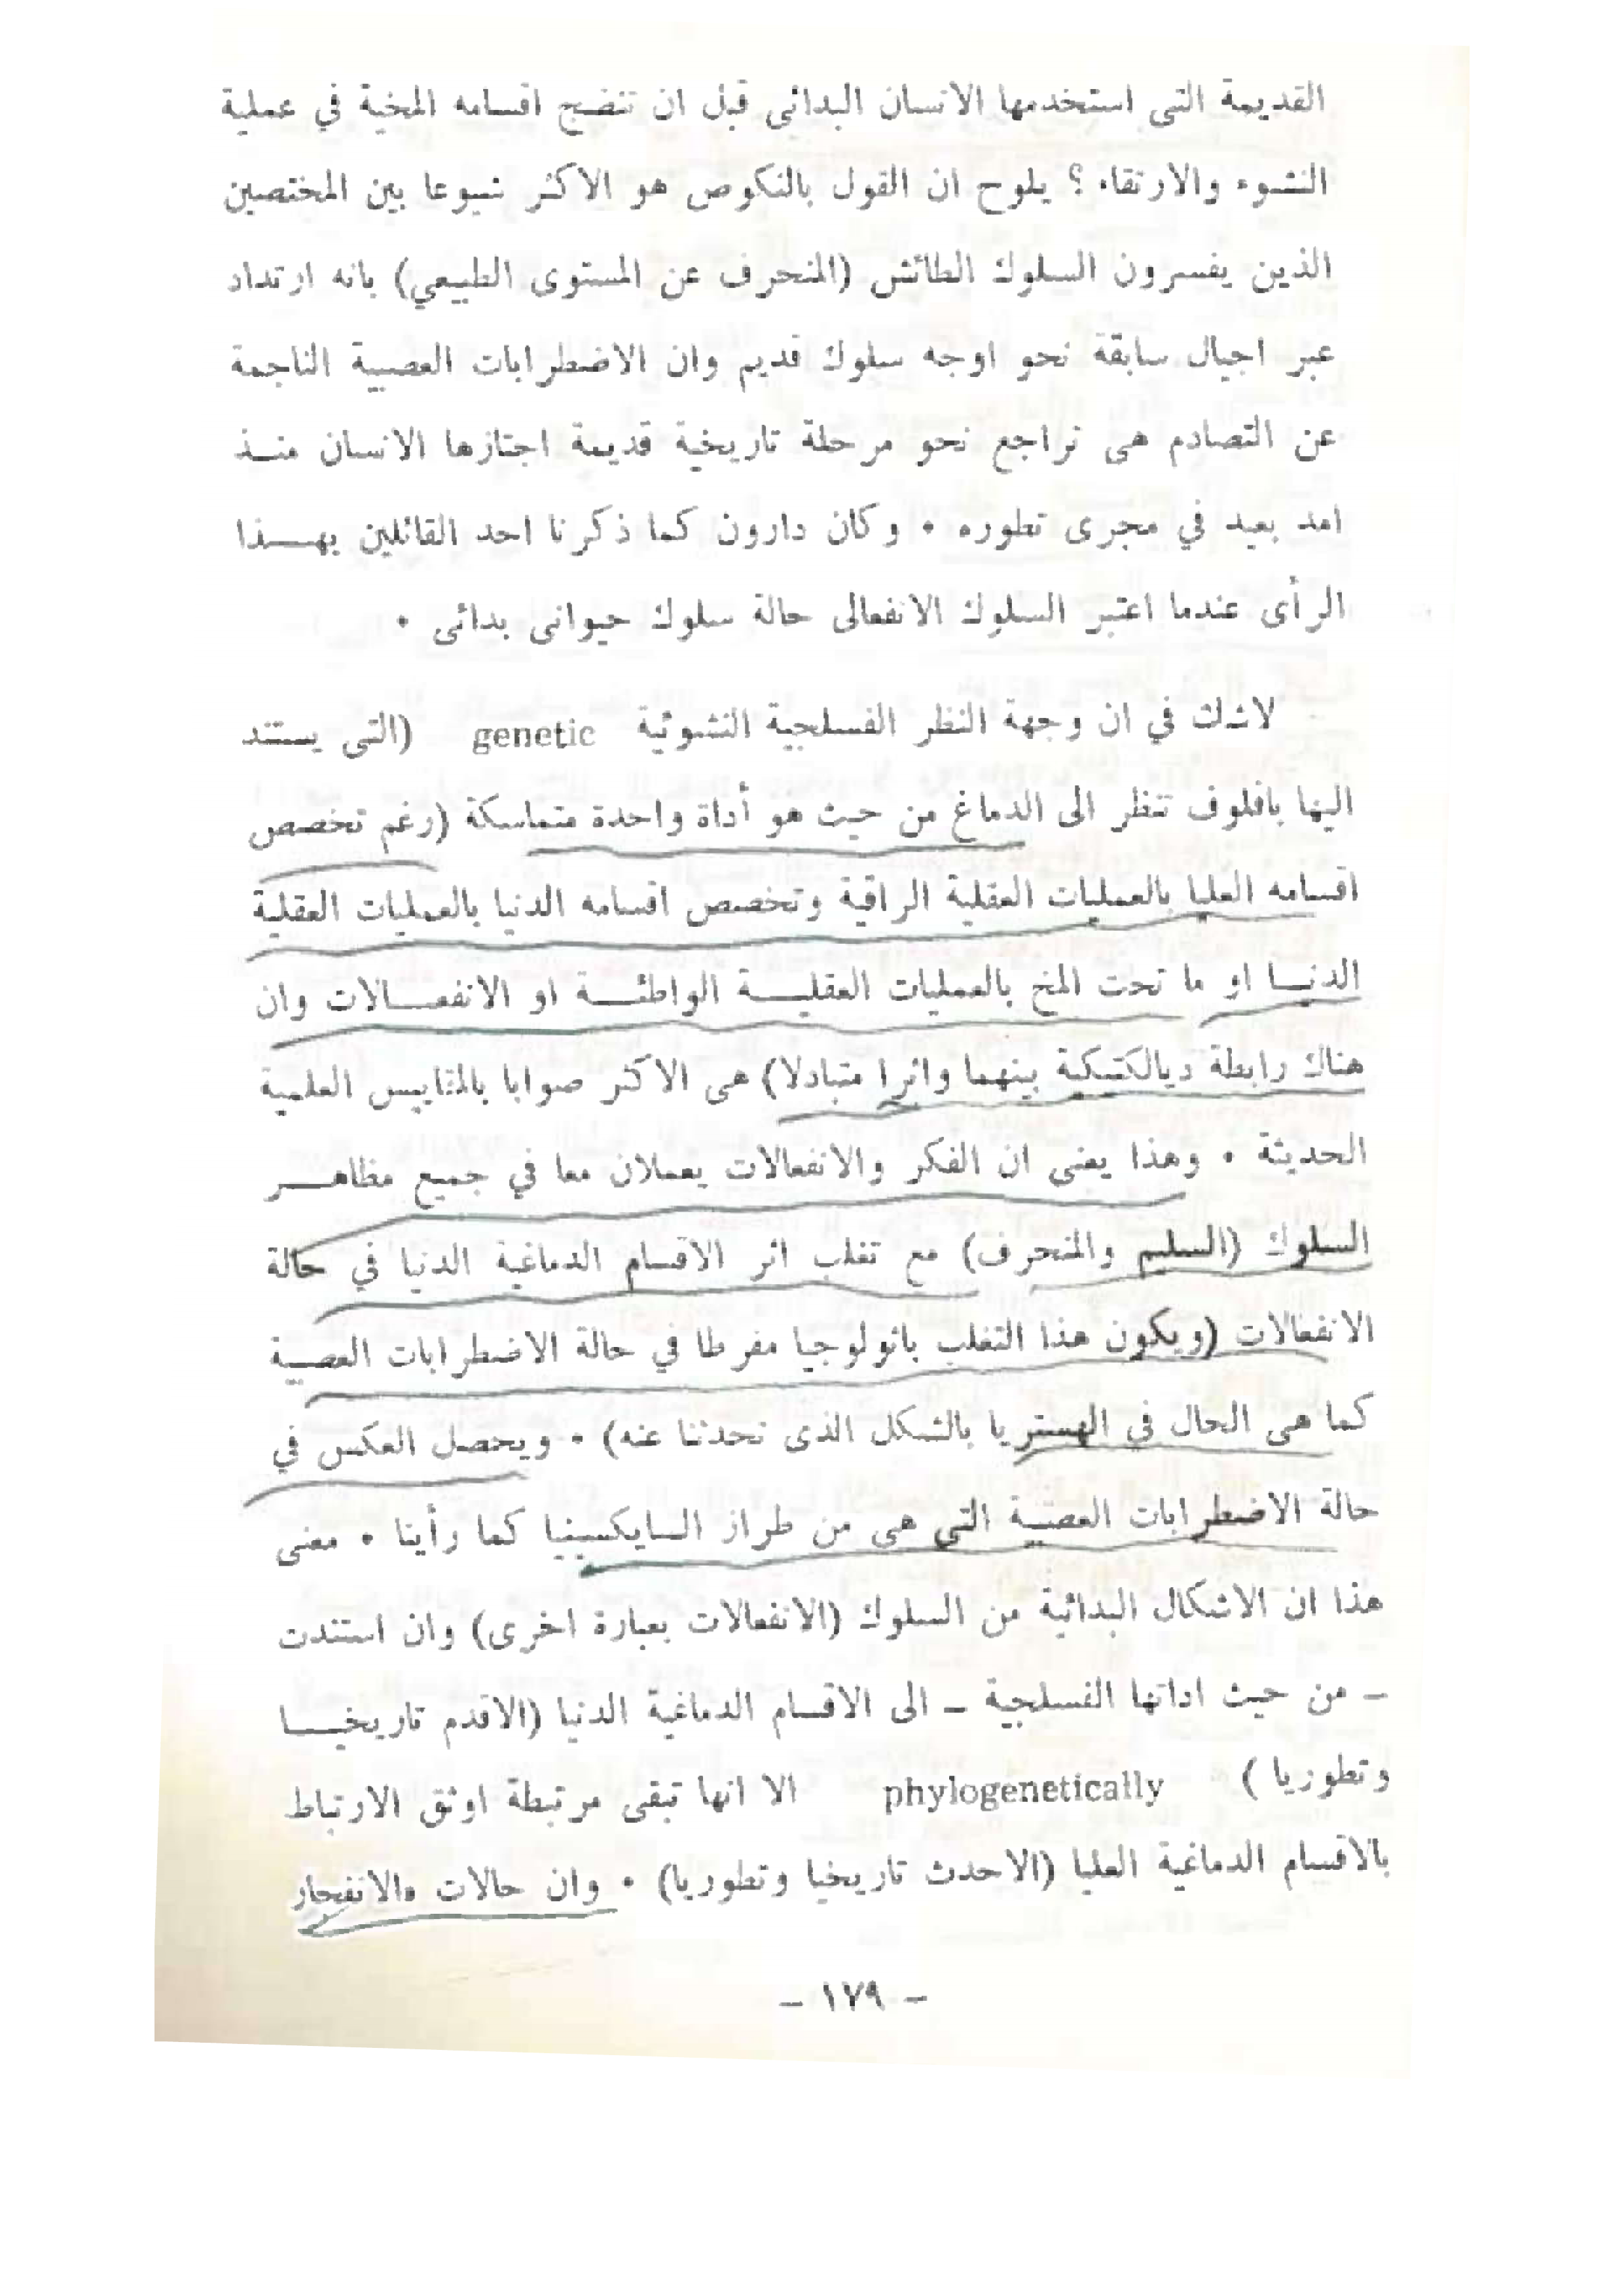 القديمة التى استخدمها الانسان البدائى قبل ان تنضج اقسامه المخية في عملية
النشوء والارتقاء ؟ يلوح ان القول بالنكوص هو الاكثر شيوعا بين المختصين
الذين يفسرون السلوك الطائش (المنحرف عن المستوى الطبيعي) بانه ارتداد
عبر اجيال سابقة نحو اوجه سلوك قديم وان الاضطرابات العصبية الناجمة
عن التصادم هى تراجع نحو مرحلة تاريخية قديمة اجتازها الانسان منـذ
امد بعيد في مجرى تطوره • وكان دارون كما ذكرنا احد القائلين بهـــذا
الرأى عندما اعتبر السلوك الانفعالى حالة سلوك حيوانى بدائى •
لاشك في ان وجهة النظر الفسلجية النشوئية genetic (التى يستند
اليها بافلوف تنظر الى الدماغ من حيث هو أداة واحدة متماسكة (رغم تخصص
اقسامه العليا بالعمليات العقلية الراقية وتخصص اقسامه الدنيا بالعمليات العقلية
الدنيـا او ما تحت المخ بالعمليات العقليـــة الواطئـــة او الانفعـــالات وان
هناك رابطة ديالكتيكية بينهما واثرا متبادلا) هى الاكثر صوابا بالمقاييس العلمية
الحديثة • وهذا يعنى ان الفكر والانفعالات يعملان معا في جميع مظاهـــر
السلوك (السليم والمنحرف) مع تغلب اثر الاقسام الدماغية الدنيا في حالة
الانفعالات (ويكون هذا التغلب باثولوجيا مفرطا في حالة الاضطرابات العصبية
كما هى الحال في الهستريا بالشكل الذى تحدثنا عنه) • ويحصل العكس في
حالة الاضطرابات العصبية التي هى من طراز السايكسينيا كما رأينا • معنى
هذا ان الاشكال البدائية من السلوك (الانفعالات بعبارة اخرى) وان استندت
– من حيث اداتها الفسلجية – الى الاقسام الدماغية الدنيا (الاقدم تاريخيـــا
وتطوريا ) phylogenetically الا انها تبقى مرتبطة اوثق الارتباط
بالاقسام الدماغية العليا (الاحدث تاريخيا وتطوريا) • وان حالات «الانفجار
– ١٧٩ –